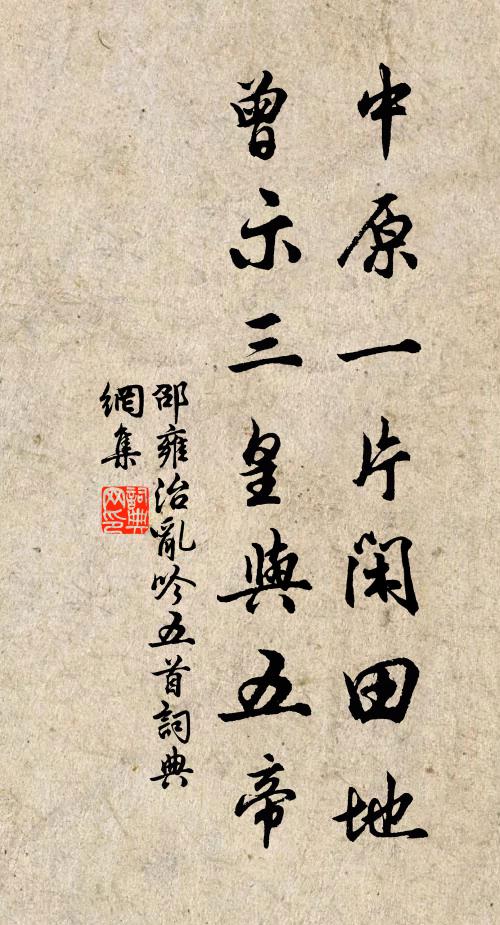 中原一片閑田地
曾示三皇與五帝
邵雍治亂吟五首詞典
網集
詞典网印